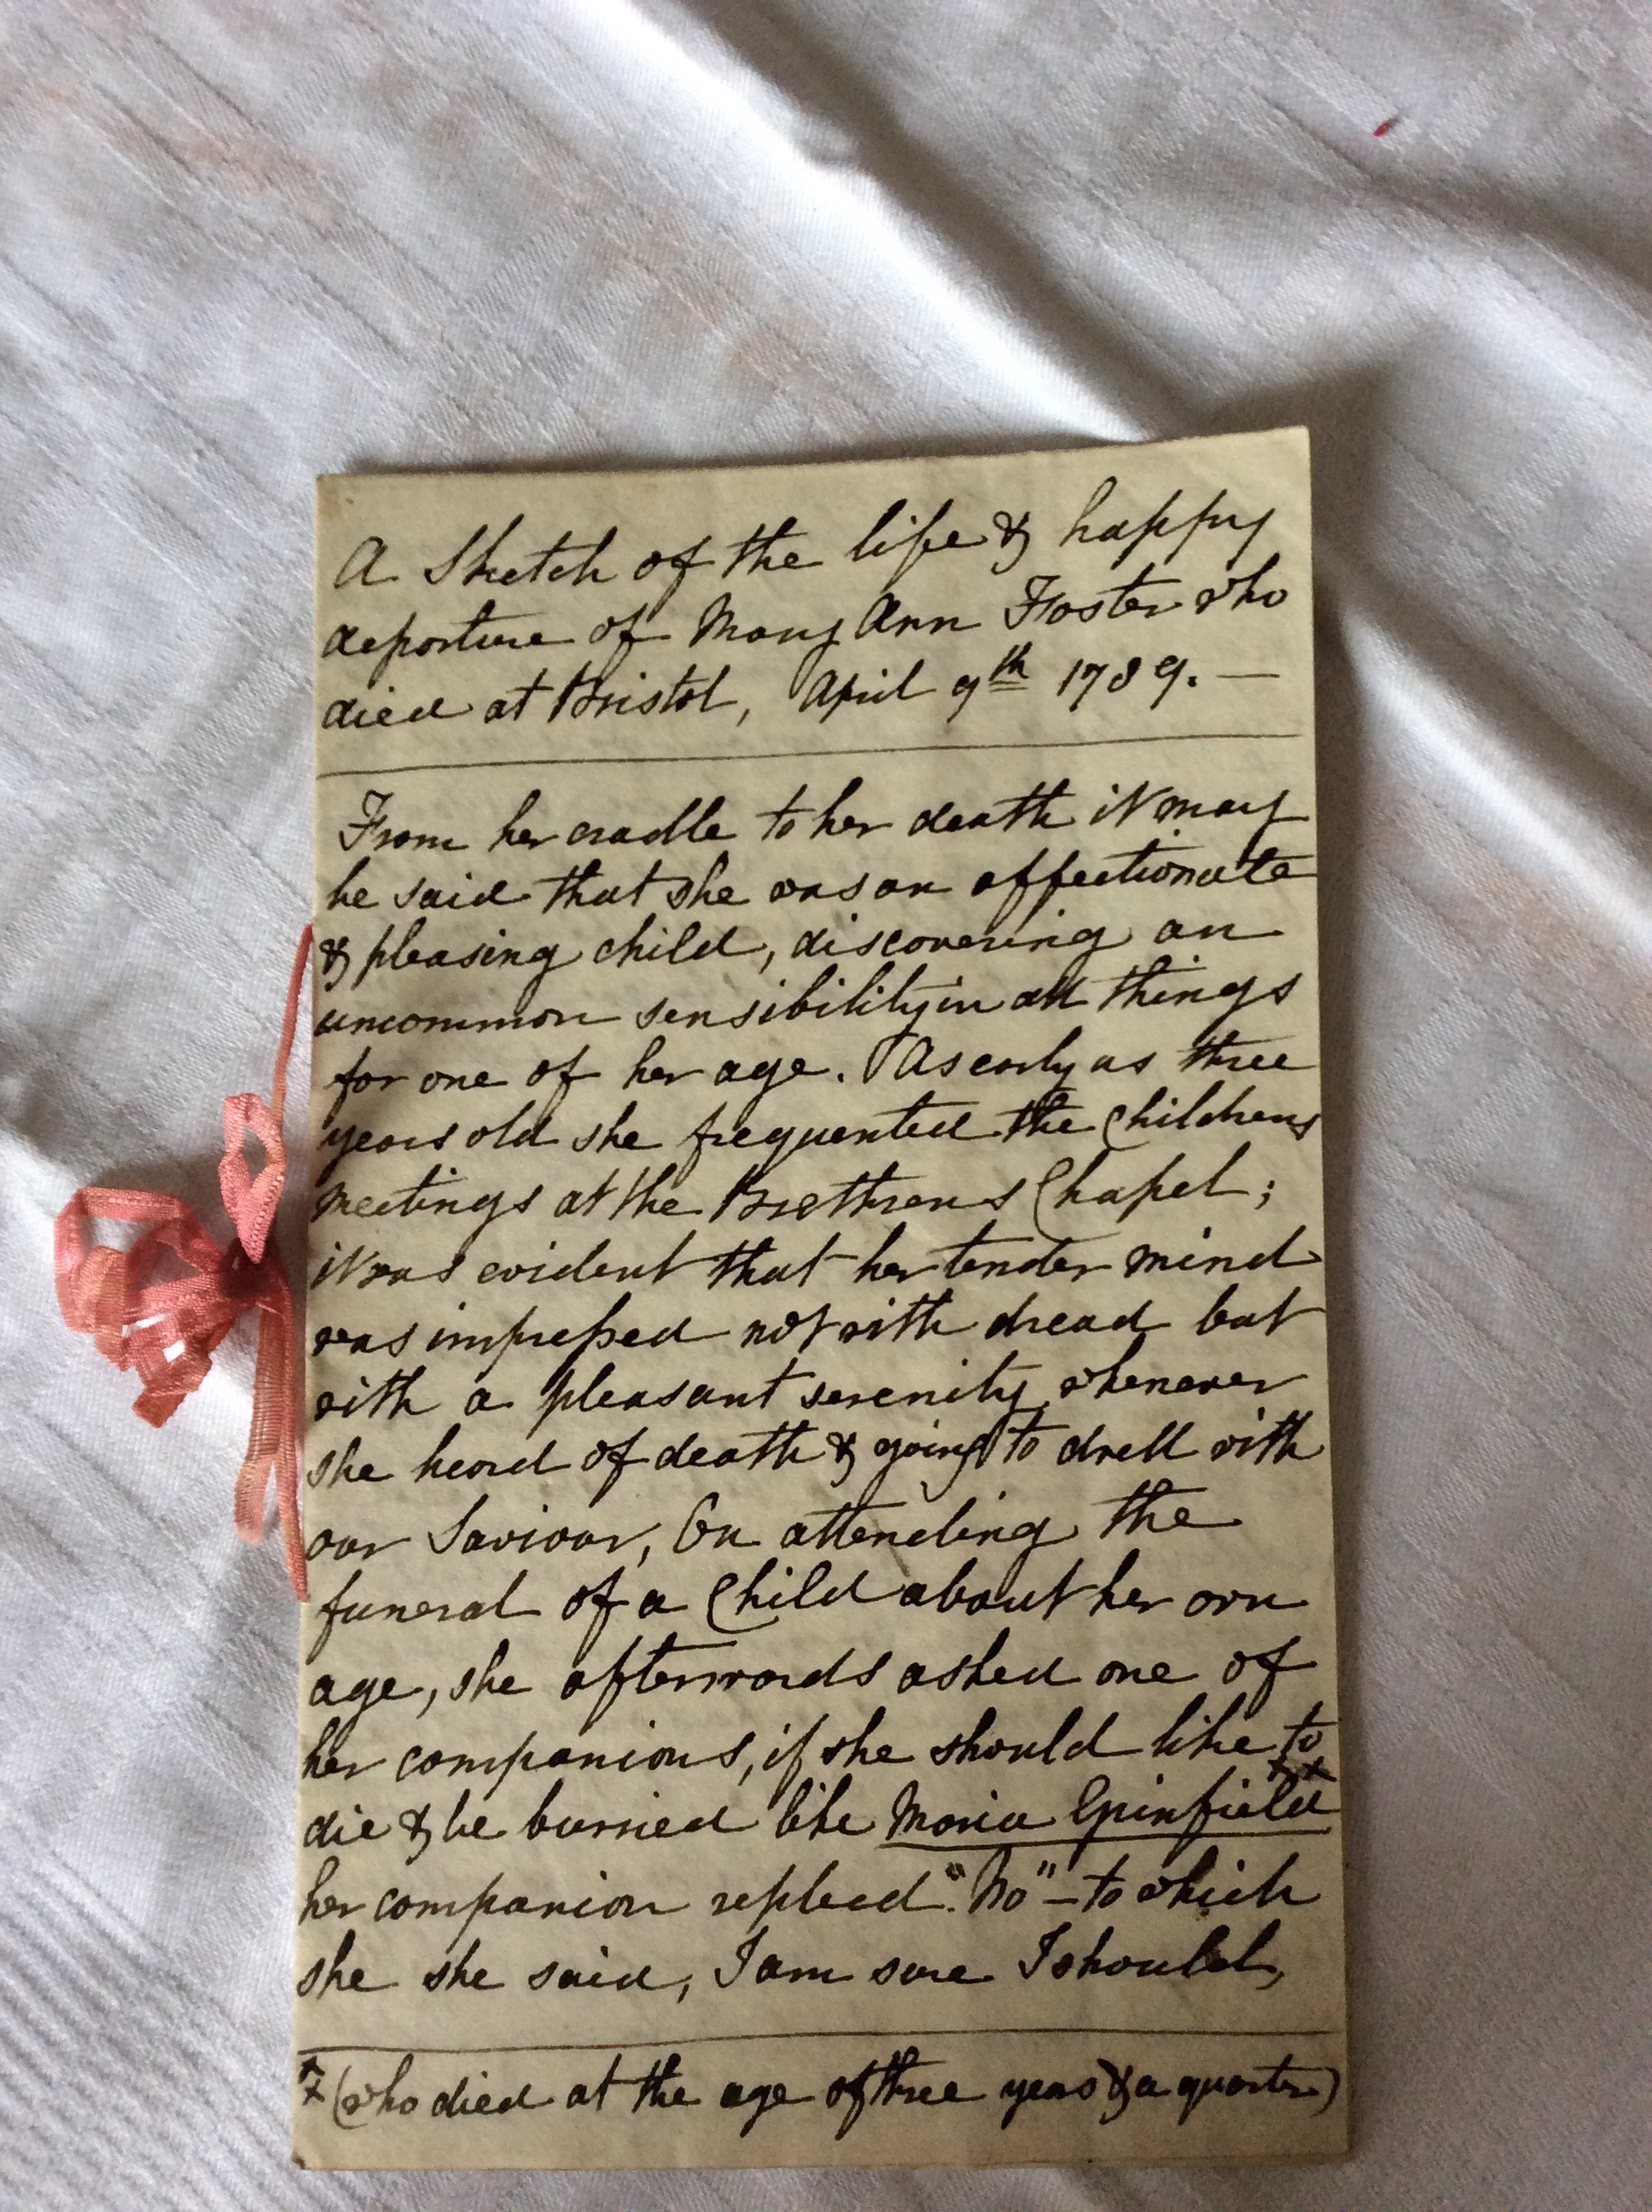 A Sketch of the life & happy
departure of Mary Ann Foster who
died at Bristol, April 9th 1789. —
From her cradle to her death it may
be said that she was an affectionate
& pleasing child, discovering an
uncommon sensibility in all things
for one of her age. As early as three
years old she frequented the Childrens
meetings at the Brethrens Chapel;
it was evident that her tender mind
was impressed not with dread but
with a pleasant serenity whenever
she heard of death & going to dwell with
our Saviour, On attending the
funeral of a Child about her own
age, she afterwards asked one of
her companions, if she should like to
die & be burried like Maria xx
her companion replied "No" – to which
she she said, I am sure I should,
xx (who died at the age of three years & a quarter)